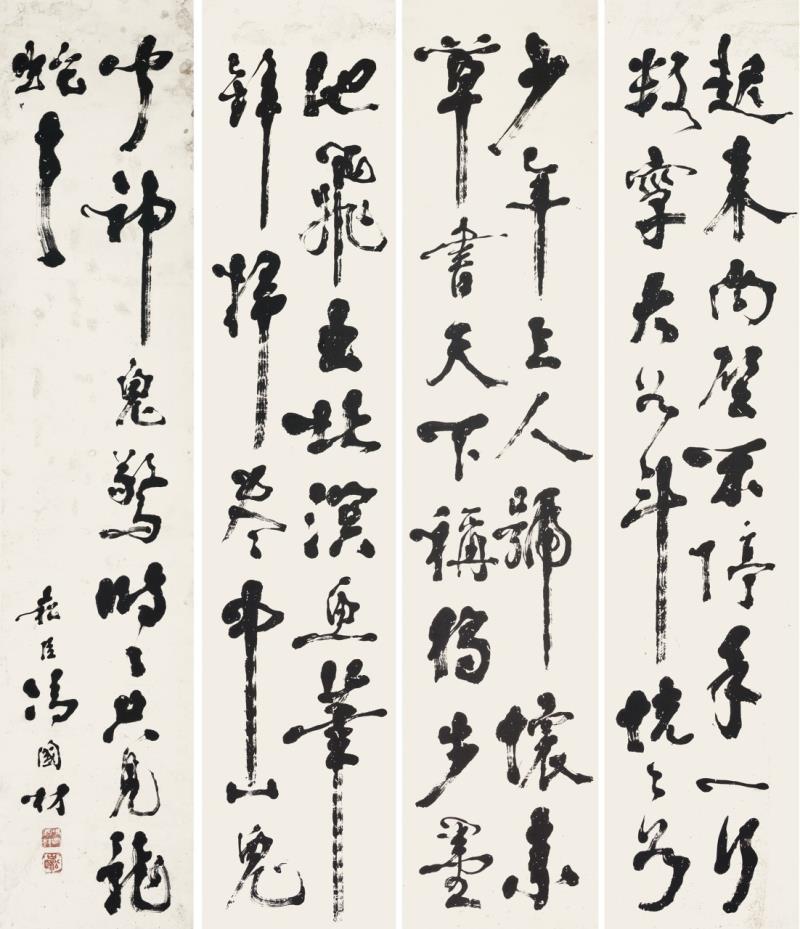 起来向壁不停手一行
数字大如斗恍々如
少年上人號懷素
草書天下稱獨步墨
池飛出北溟魚筆
鋒掃盡中山兔
聞神鬼驚時々只見龍
蛇走
臣馮國材